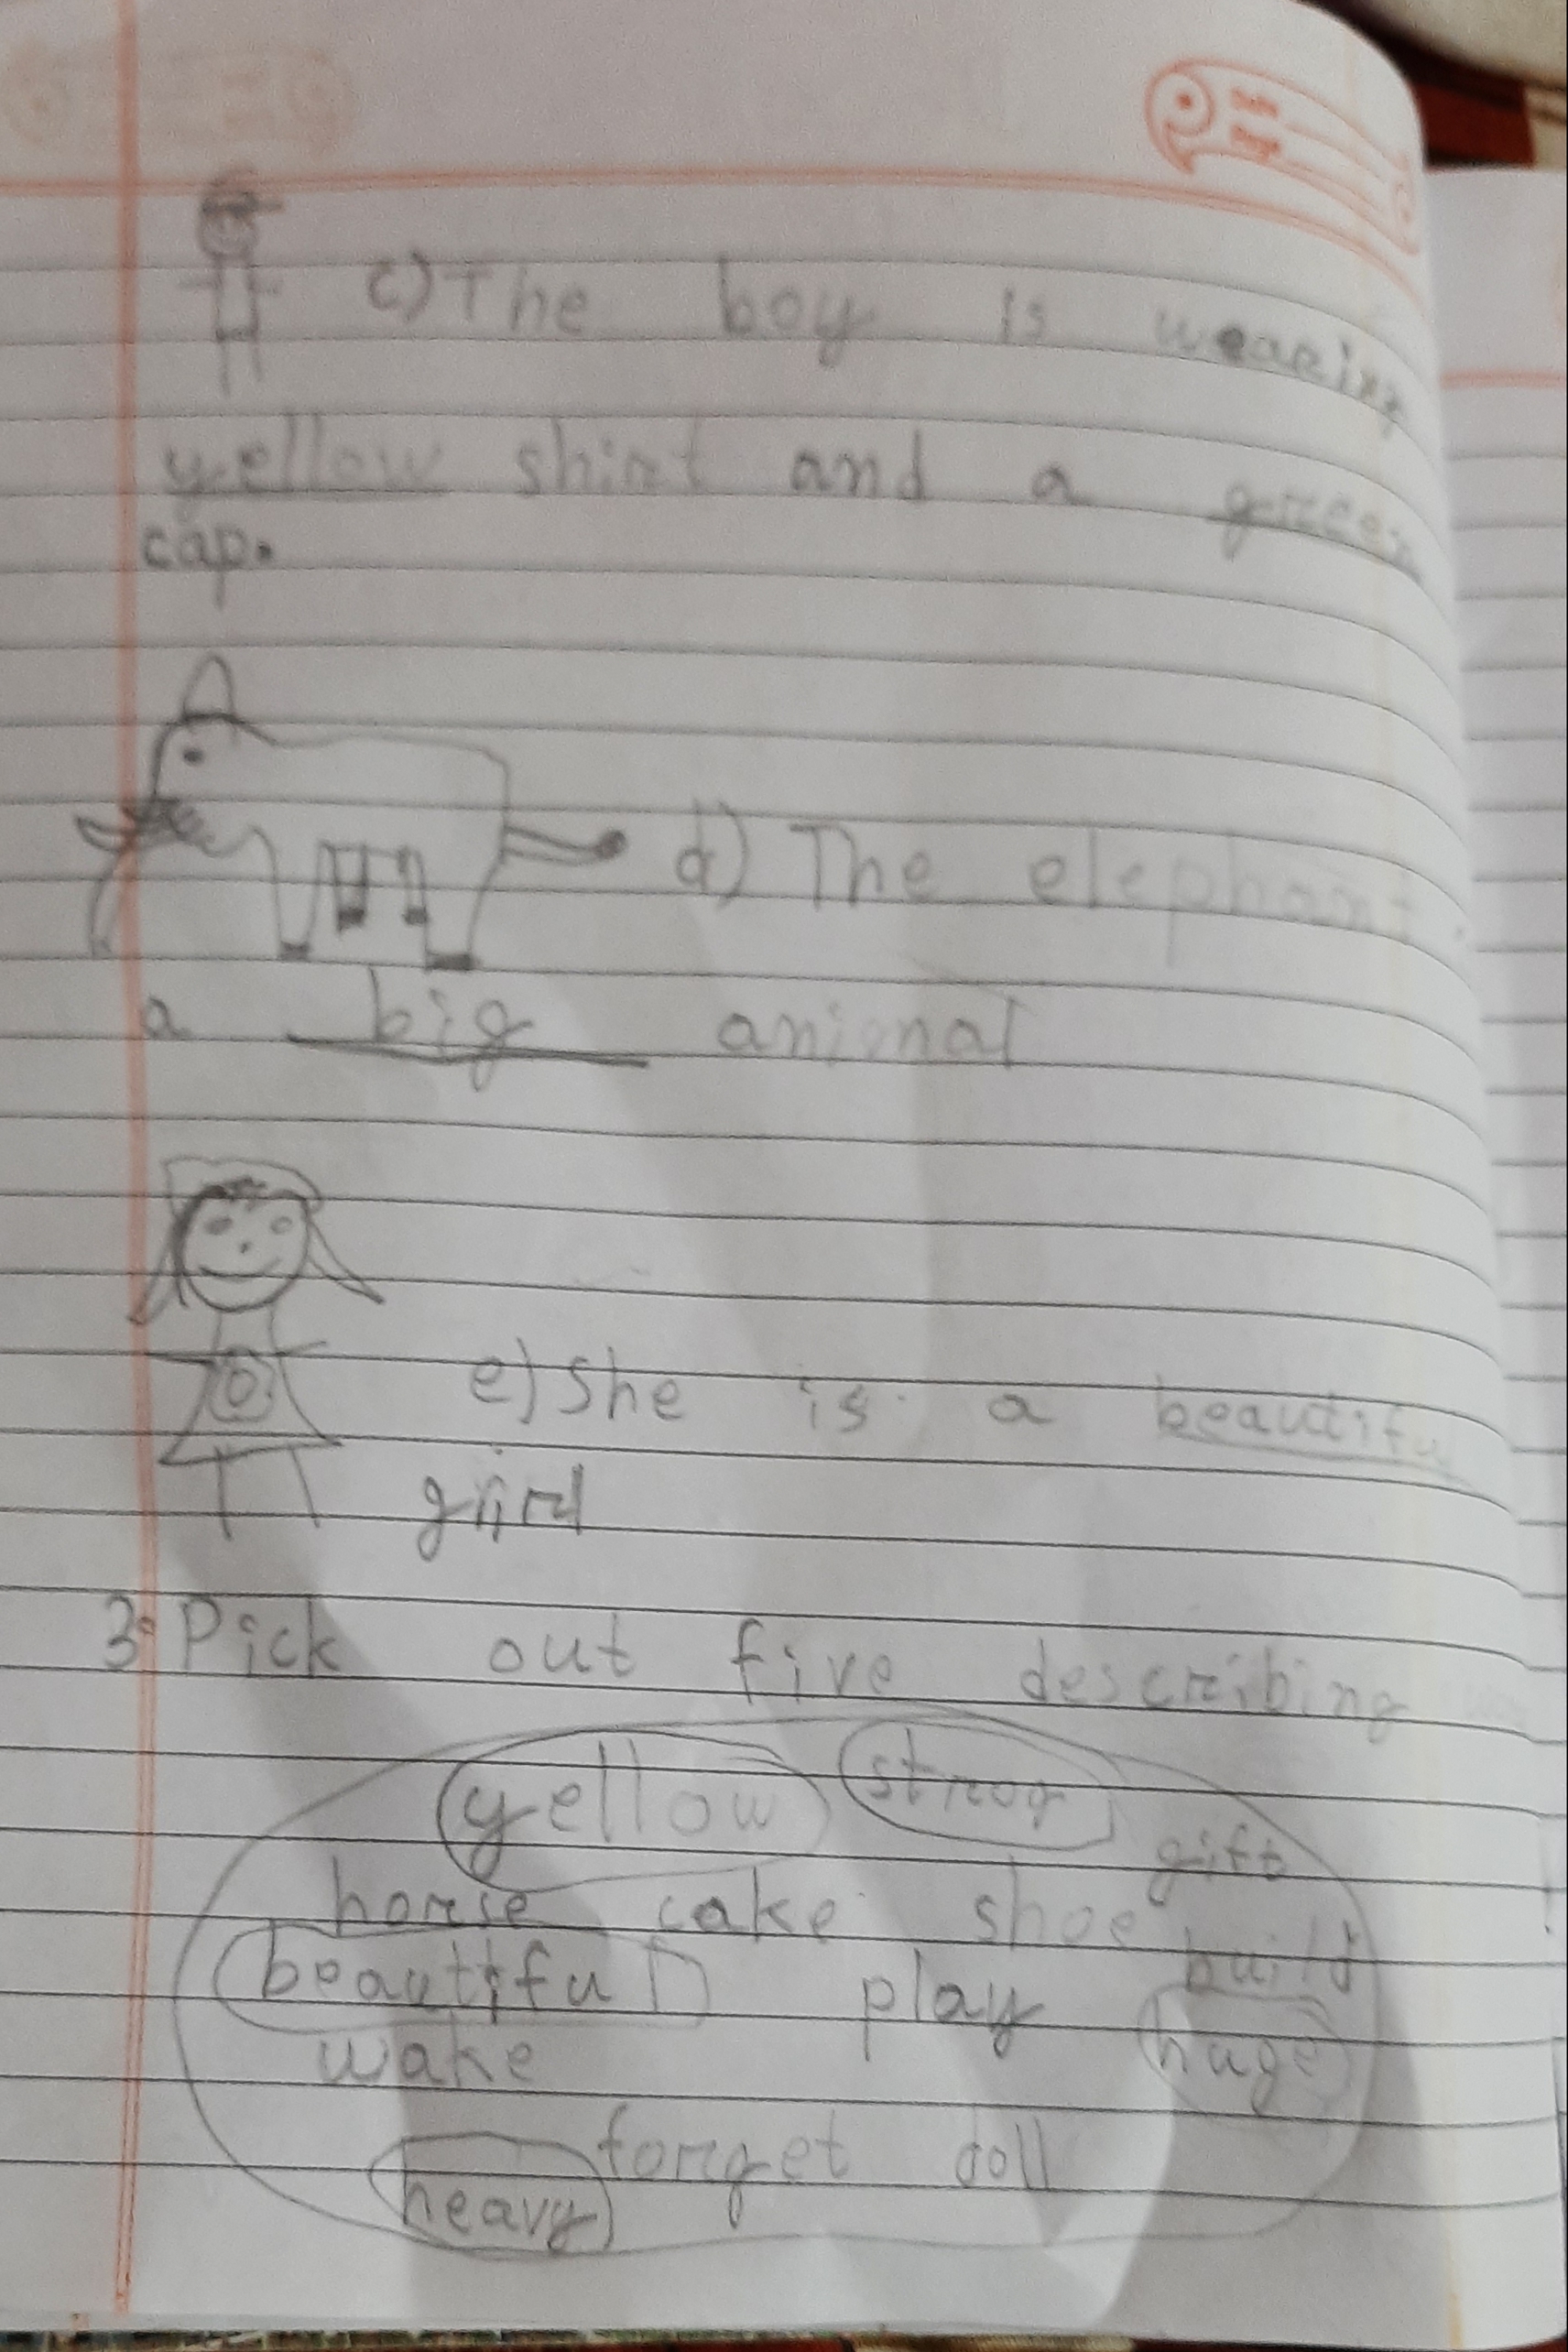 c) The boy is wearing
yellow shirt and a green
cap.
d) The elephant
a big animal
e) She is a beautiful
grird
3. Pick out five describing
yellow strog
gift
horse cake shoe
build
beautiful play
huge
wake
forget doll
heavy